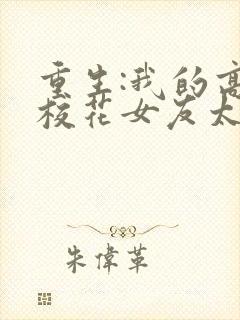 重生:我的高
校花女友太
朱偉革